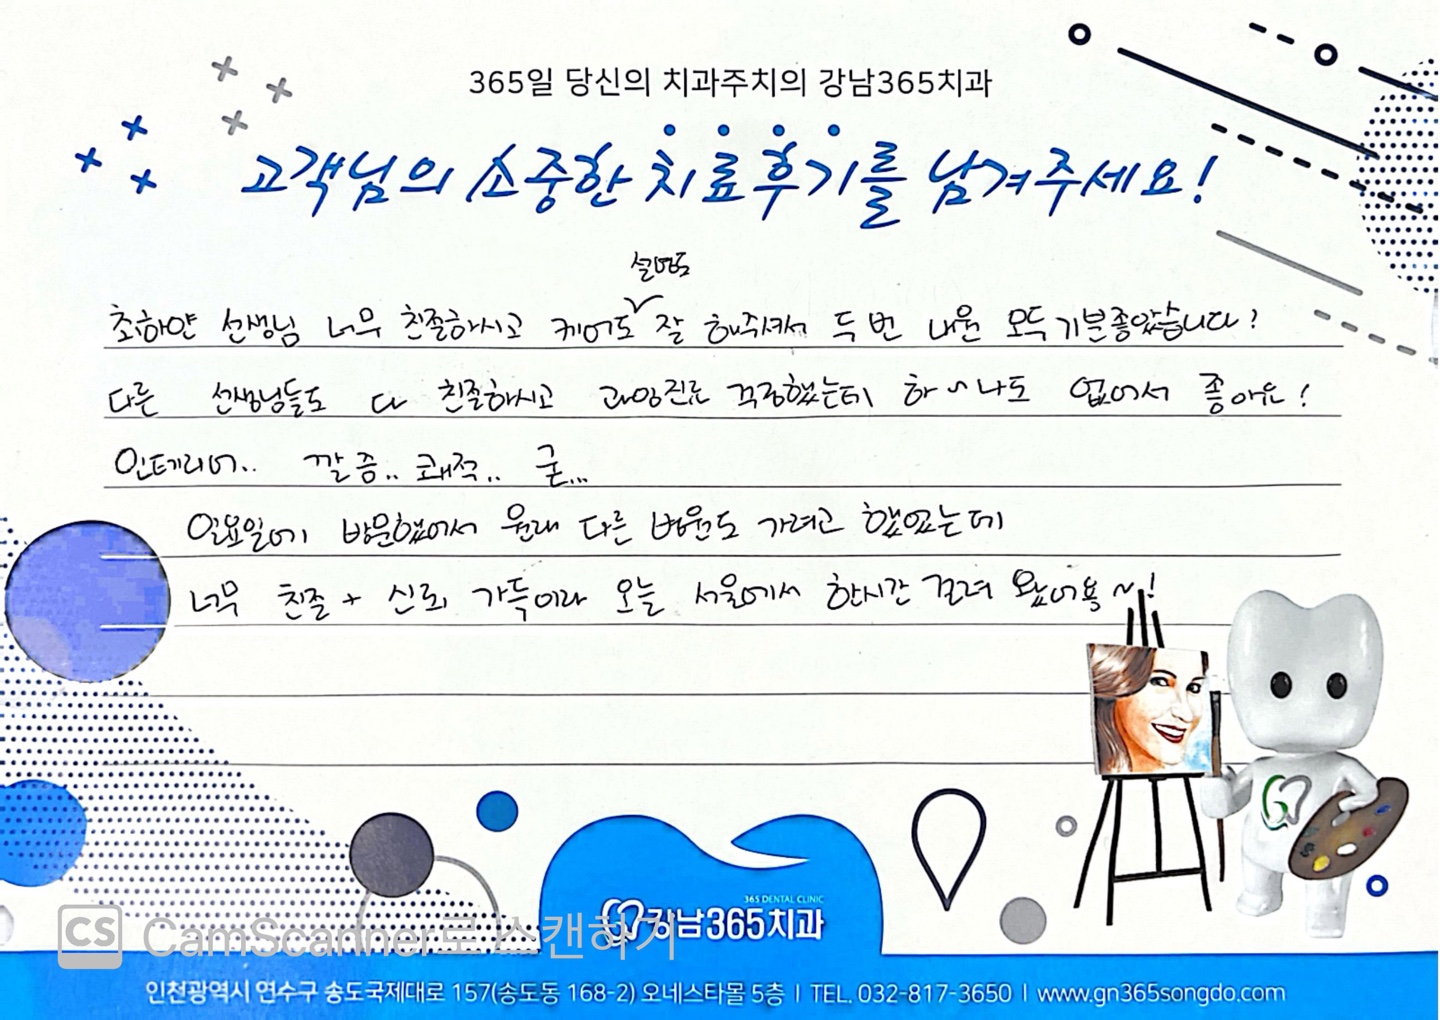 365일 당신의 치과주치의 강남365치과
고객님의 소중한 치료후기를 남겨주세요!
설명도
초하얀 선생님 너무 친절하시고 케어도 잘 해주셔서 두 번 내원 모두 기분좋았습니다!
다른 선생님들도 다 친절하시고 과잉진료 걱정했는데 하나도 없어서 좋아요!
인테리어.. 깔끔.. 쾌적.. 굳...
일요일에 방문했어서 원래 다른 병원도 가려고 했었는데
너무 친절 + 신뢰 가득이라 오늘 서울에서 한시간 걸려 왔어용~!
365 DENTAL CLINIC
강남365치과
CS CamScanner로 스캔하기
인천광역시 연수구 송도국제대로 157(송도동 168-2) 오네스타몰 5층 | TEL. 032-817-3650 | www.gn365songdo.com